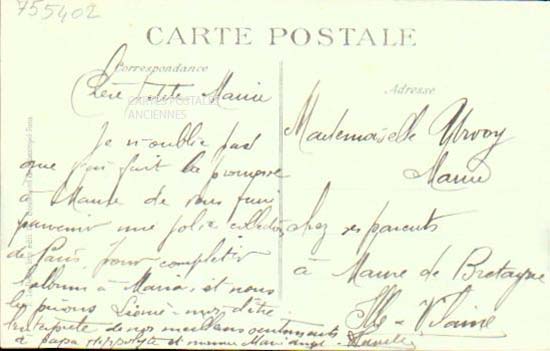 755402
CARTE POSTALE
Correspondance
Adresse
CARTES POSTALES
ANCIENNES
Chère petite Marie
Je n'oublie pas
que j'ai fait la promesse
à Marie de vous faire
parvenir une jolie collection
de Paris pour compléter
l'album à Maria, et nous
les prions d'être
interprète de nos meilleurs sentiments
à papa et maman
Mademoiselle Yvroy
Marie
chez ses parents
à Maure de Bretagne
Ille-Vilaine